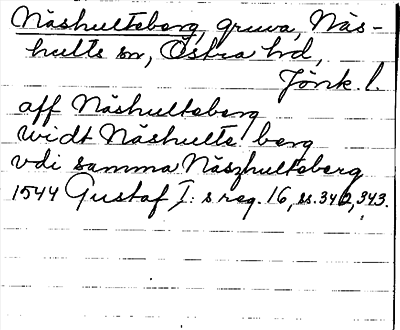 Näshultsberg, gruva, Näs-
hults sn, Östra hd,
Jönk. l.
aff Näshultsberg
widt Näshults berg
vdi samma Näszhultsberg
1544 Gustaf I:s reg. 16, ss. 342, 343.